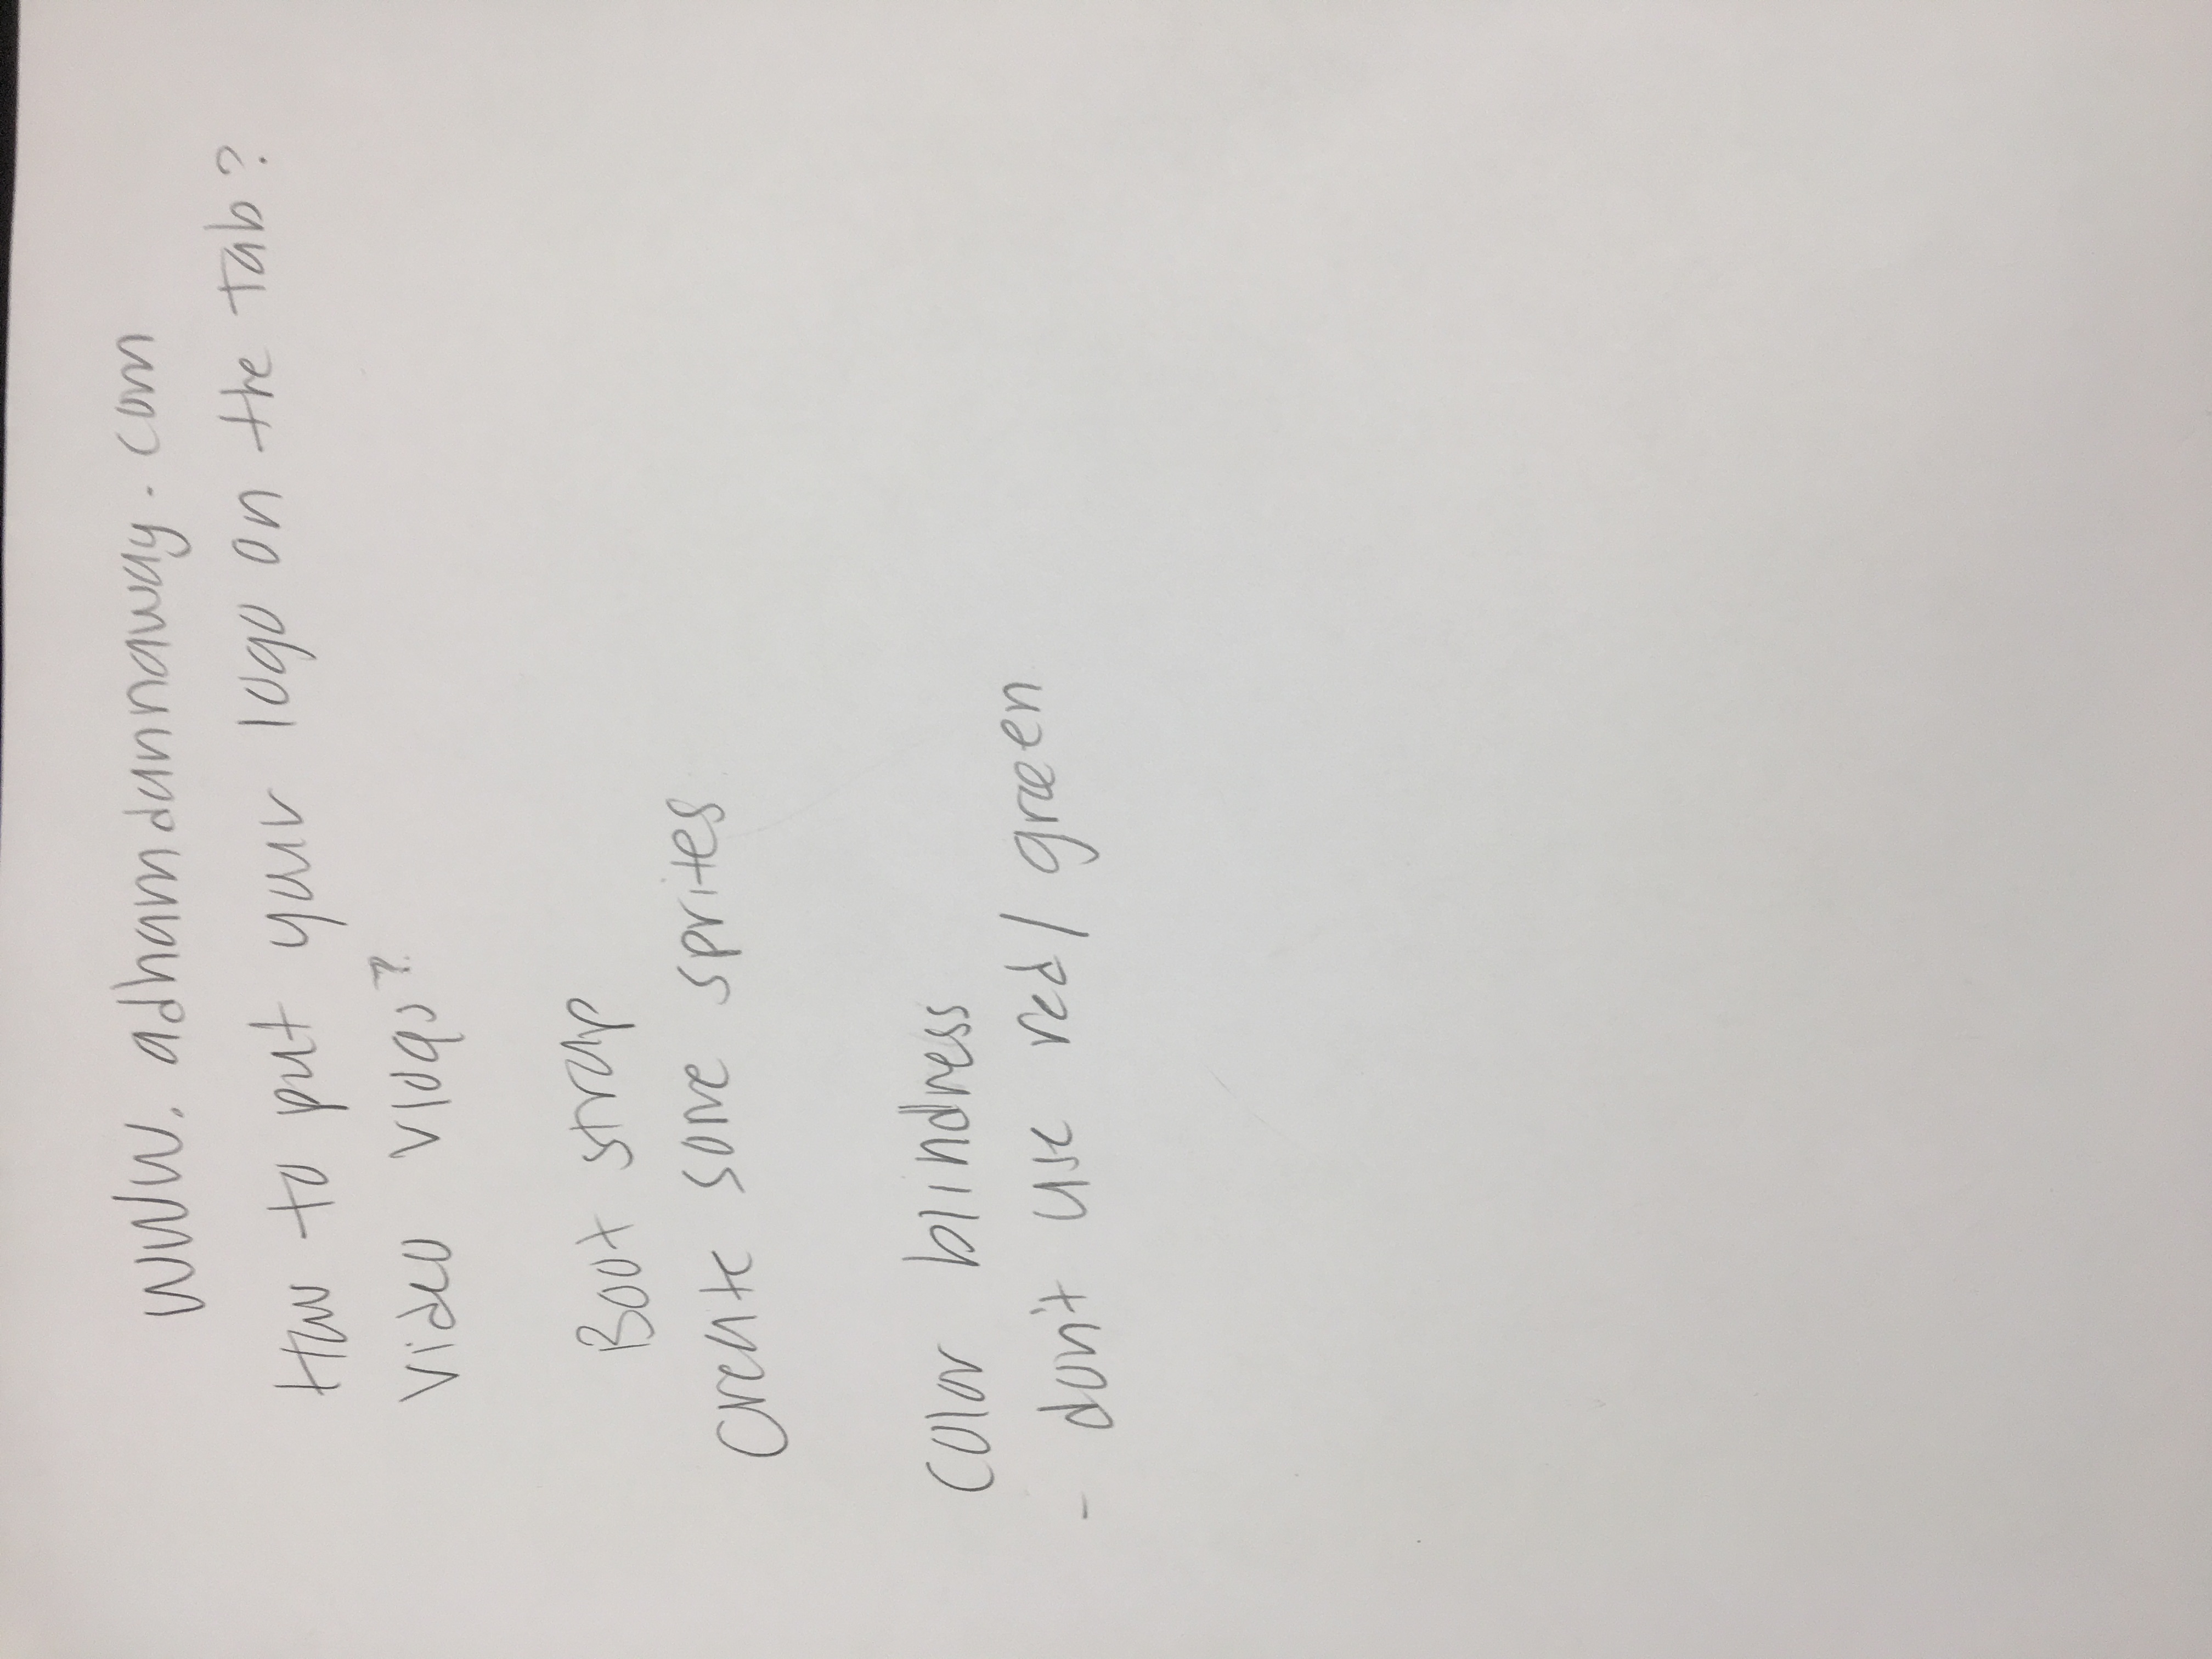 www.adhamdannaway.com
How to put your logo on the tab?
Video Vlogs?
Boot strap
create some sprites
color blindness
- don't use red/green